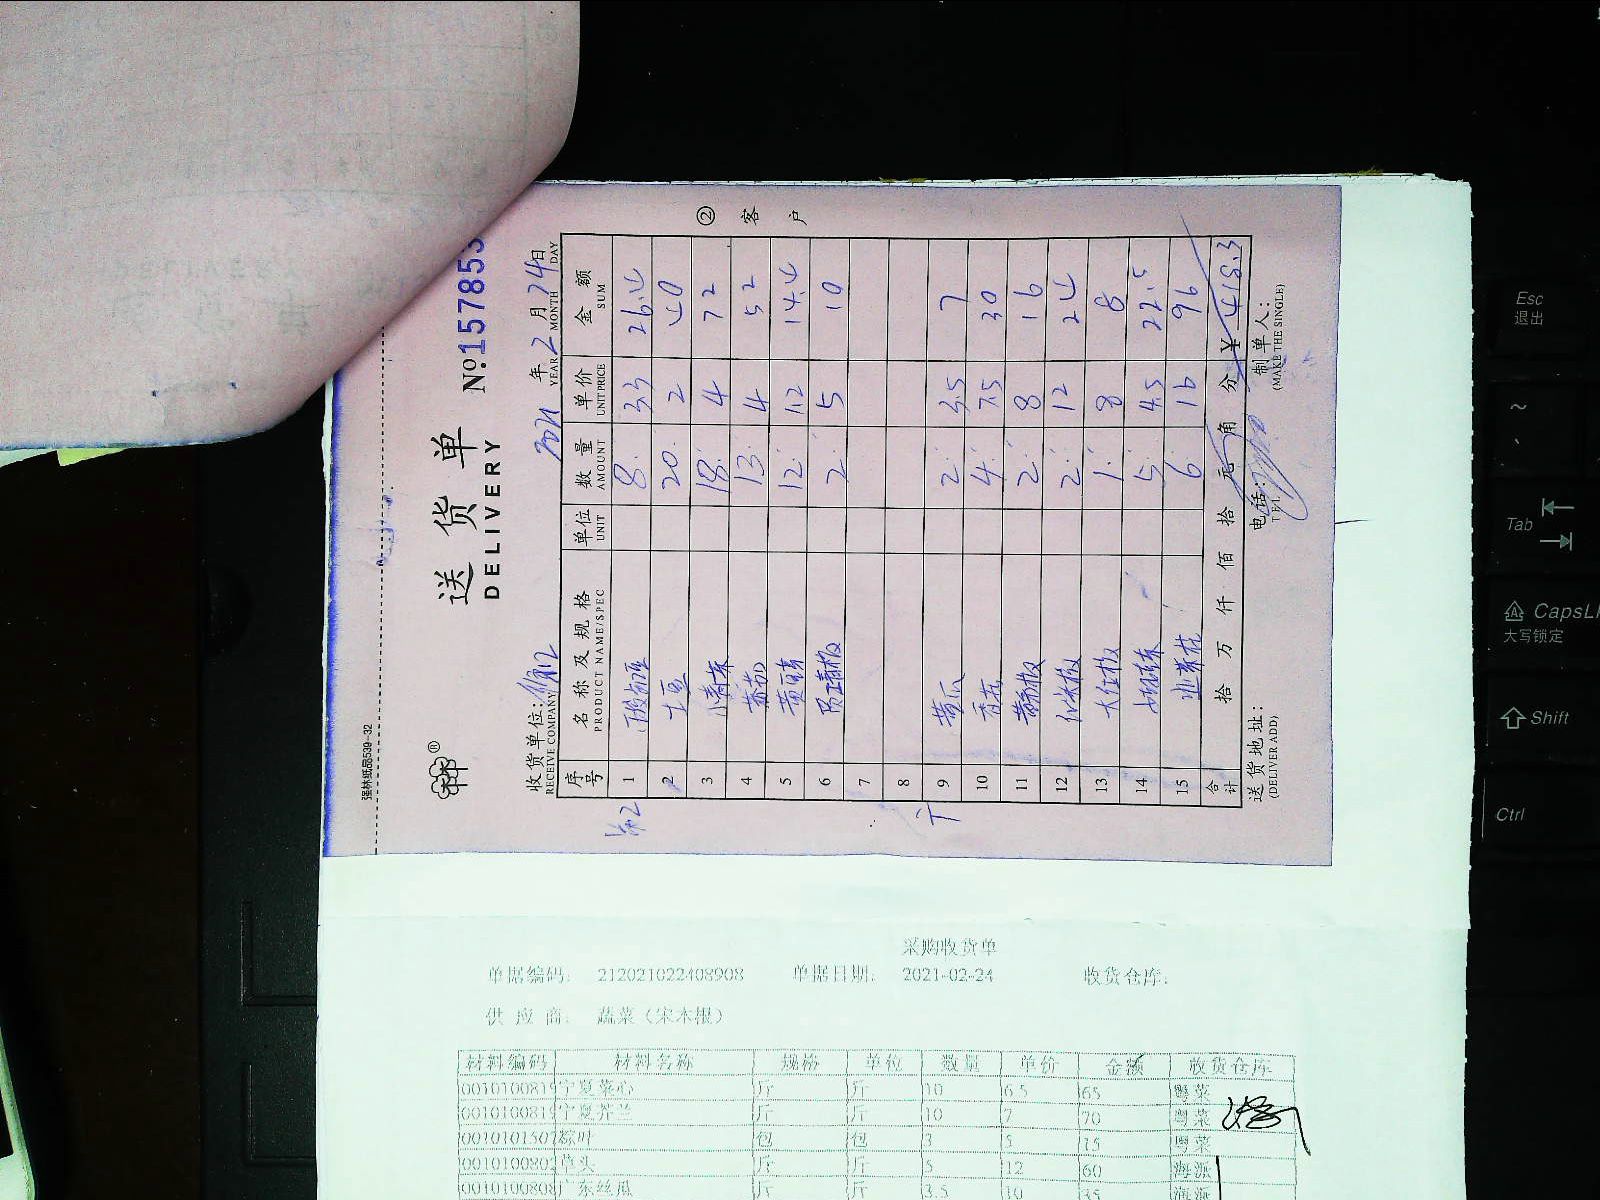 强林纸品539-32
送货单 №157853
DELIVERY
收货单位: 2021 年 2 月 24 日
RECEIVE COMPANY YEAR MONTH DAY
序号 名称及规格 单位 数量 单价 金额
PRODUCT NAME/SPEC UNIT AMOUNT UNIT PRICE SUM
1 8 3.3 26.4
2 土豆 20 2 40
3 18 4 72
4 番茄 13 4 52
5 12 1.2 14.4
6 2 5 10
7
8
9 黄瓜 2 3.5 7
10 4 7.5 30
11 2 8 16
12 2 12 24
13 大红椒 1 8 8
14 5 4.5 22.5
15 6 16 96
合计 拾 万 仟 佰 拾 元 角 分 ¥ 418.3
送货地址: 电话: 制单人:
(DELIVER ADD) TEL (MAKE THE SINGLE)
② 客户
采购收货单
单据编码: 212021022408908 单据日期: 2021-02-24 收货仓库:
供应商: 蔬菜(宋木根)
材料编码 材料名称 规格 单位 数量 单价 金额 收货仓库
0010100819 宁夏菜心 斤 斤 10 6.5 65 粤菜
0010100819 宁夏芥兰 斤 斤 10 7 70 粤菜
0010101507 粽叶 包 包 3 5 15 粤菜
0010100802 草头 斤 斤 5 12 60 海派
0010100808 广东丝瓜 斤 斤 3.5 10 35 海派
Esc
退出
~
Tab
CapsL
大写锁定
Shift
Ctrl